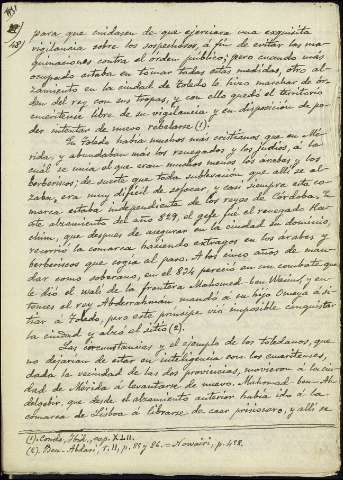 48)
para que cuidasen de que ejerciera una exquisita
vigilancia sobre los sospechosos, á fin de evitar las ma-
quinaciones contra el órden público; pero cuando más
ocupado estaba en tomar todas estas medidas, otro al-
zamiento en la ciudad de Toledo le hizo marchar de ór-
den del rey con sus tropas, y con ello quedó el territorio
emeritense libre de su vigilancia y en disposicion de po-
der intentar de nuevo rebelarse (1).
En Toledo habia muchos más cristianos que en Mé-
rida, y abundaban más los renegados y los judios, á lo
cual se unia el que eran muchos menos los árabes y los
berberiscos; de suerte que toda sublevación que allí se al-
zaba, era muy dificil de sofocar, y casi siempre esta co-
marca estaba independiente de los reyes de Córdoba. En
este alzamiento del año 829, el gefe fué el renegado Ha-
chim, que despues de asegurar en la ciudad su dominio,
recorrió la comarca haciendo estragos en los árabes y
berberiscos que cogia al paso. A los cinco años de man-
dar como soberano, en el 834 pereció en un combate que
le dió el wali de la frontera Mohamed ben Wasim, y en-
tonces el rey Abderrahman mandó á su hijo Omeya á si-
tiar á Toledo, pero este príncipe vió imposible conquistar
la ciudad y alzó el sitio (2).
Las circunstancias y el ejemplo de los toledanos, que
no dejarian de estar en inteligencia con los emeritenses,
dada la vecindad de las dos provincias, movieron á la ciu-
dad de Mérida á levantarse de nuevo. Mahmad ben Ab-
delgebir, que desde el alzamiento anterior habia ido á la
comarca de Lisboa á librarse de caer prisionero, y allí se
(1). Conde, Ibid, cap. XLII.
(2). Ben-Adhari, T. II, p. 85 y 86. = Nowairi, p. 458.